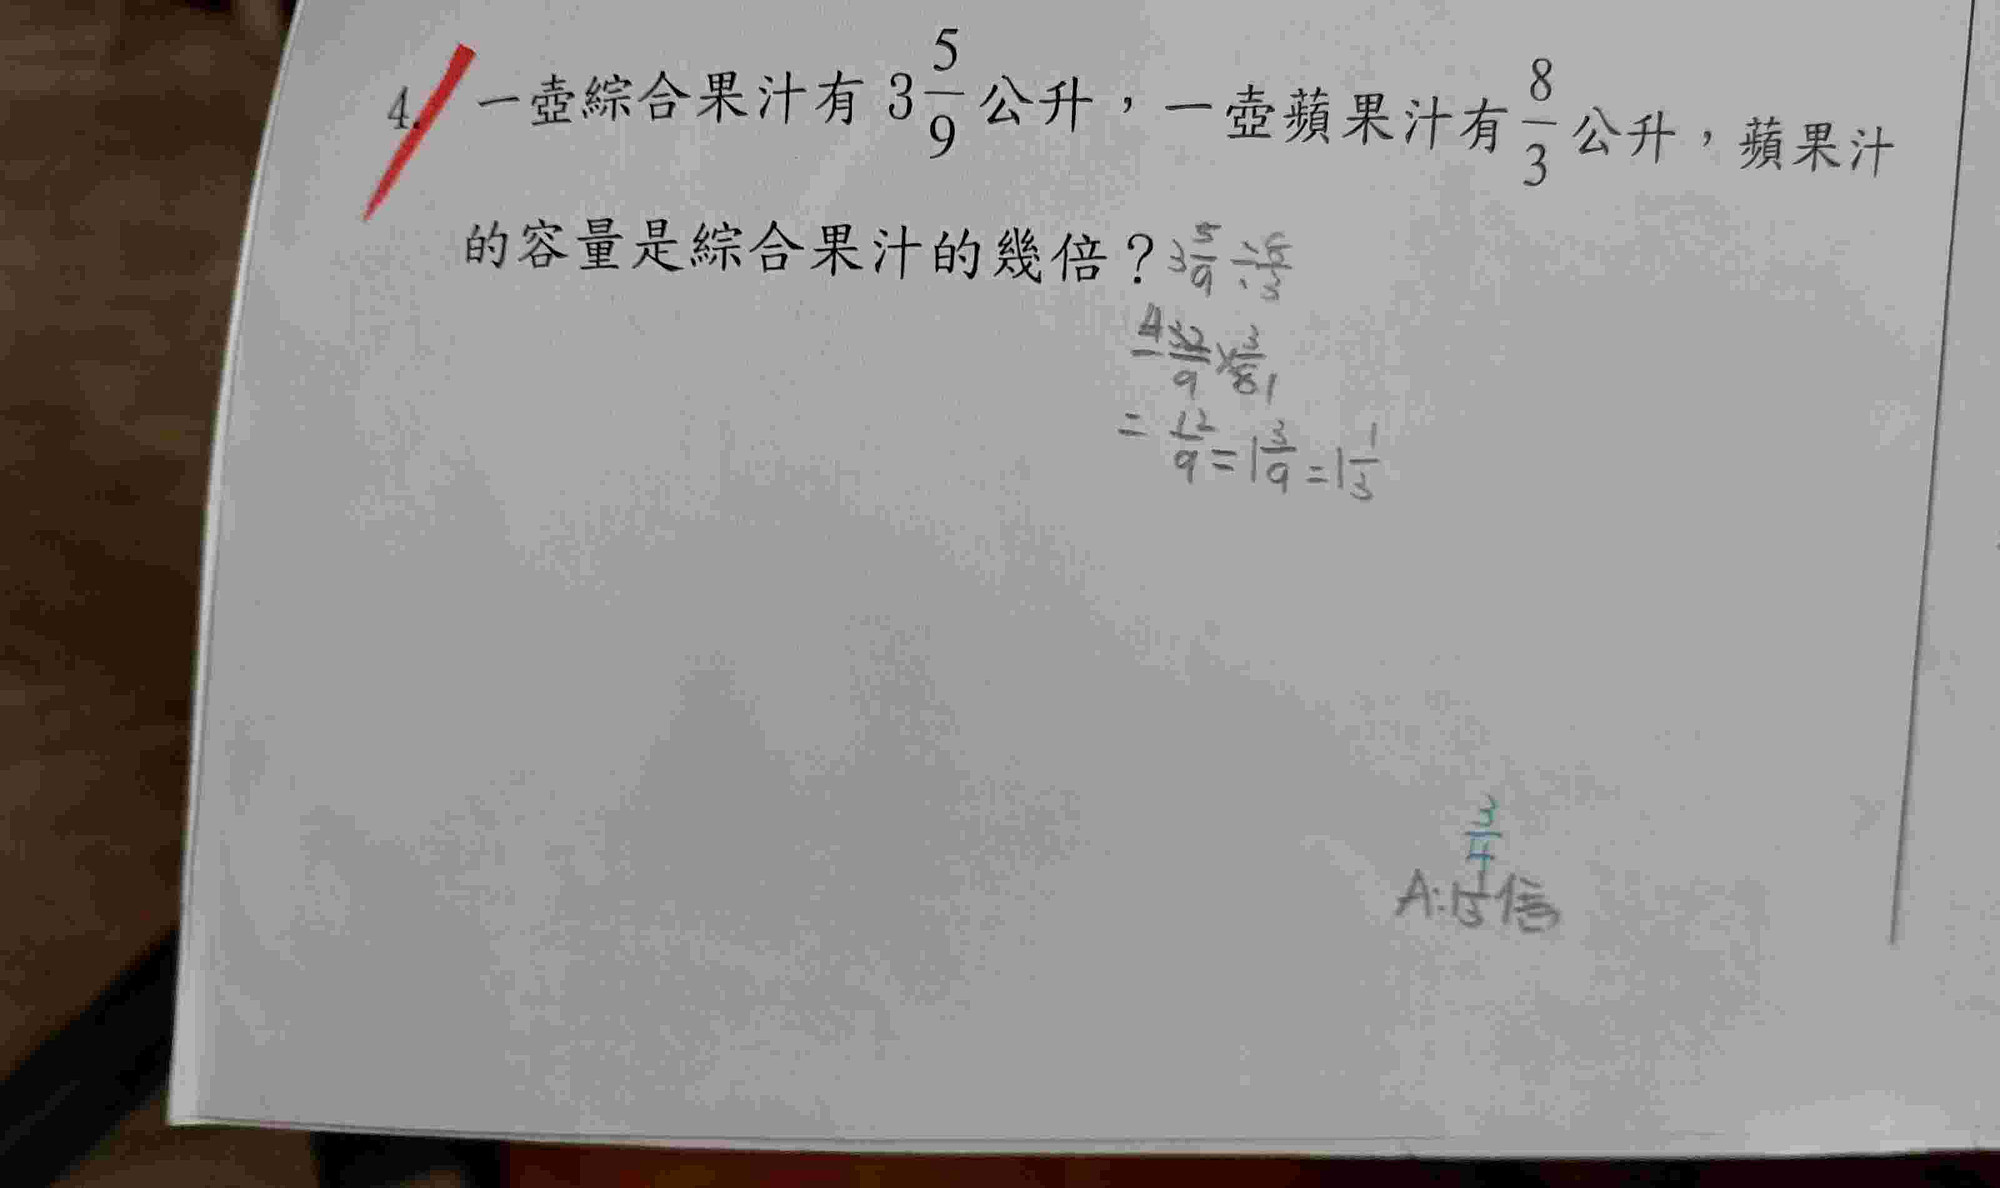 4. 一壺綜合果汁有 3 5/9 公升，一壺蘋果汁有 8/3 公升，蘋果汁
的容量是綜合果汁的幾倍？ 3 5/9 ÷ 8/3
4 32/9 × 3/8 1
= 12/9 = 1 3/9 = 1 1/3
3/4
A: 1 1/3 倍